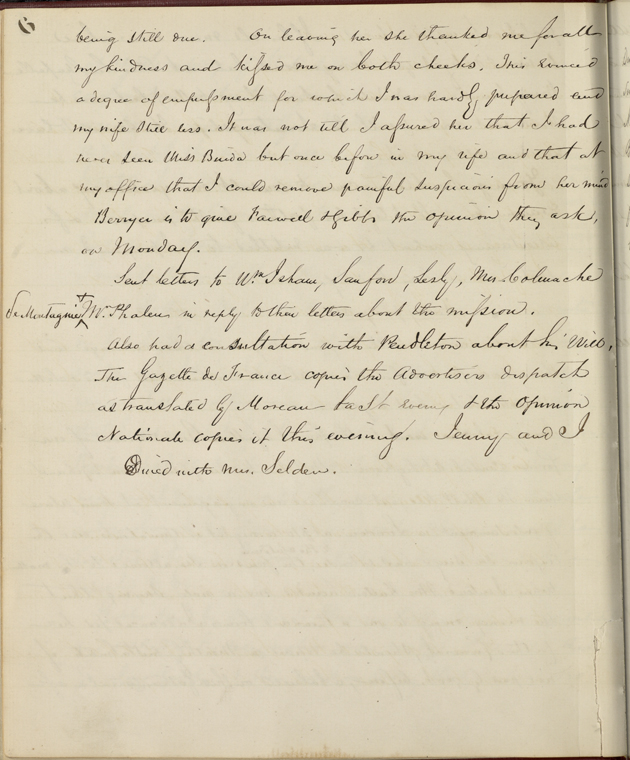 6
being still due. On leaving her she thanked me for all
my kindness and kissed me on both cheeks. This evinced
a degree of empressment for which I was hardly prepared and
my wife still less. It was not till I assured her that I had
never seen Miss Burda but once before in my life and that at
my office that I could remove painful suspicions from her mind
Berryer is to give Farwell & Gibbs the opinion they ask,
on Monday.
Sent letters to Wm Isham, Sanford, Lesly, Mrs Colmache
de Montagnie + Mr Phalen in reply to their letters about the mission.
Also had a consultation with Pendleton about his Will,
The Gazette de France copies the Advertisers dispatch
as translated by Moreau last evening & the Opinion
Nationale copies it this evening. Jenny and I
Dined with Mrs. Selden.